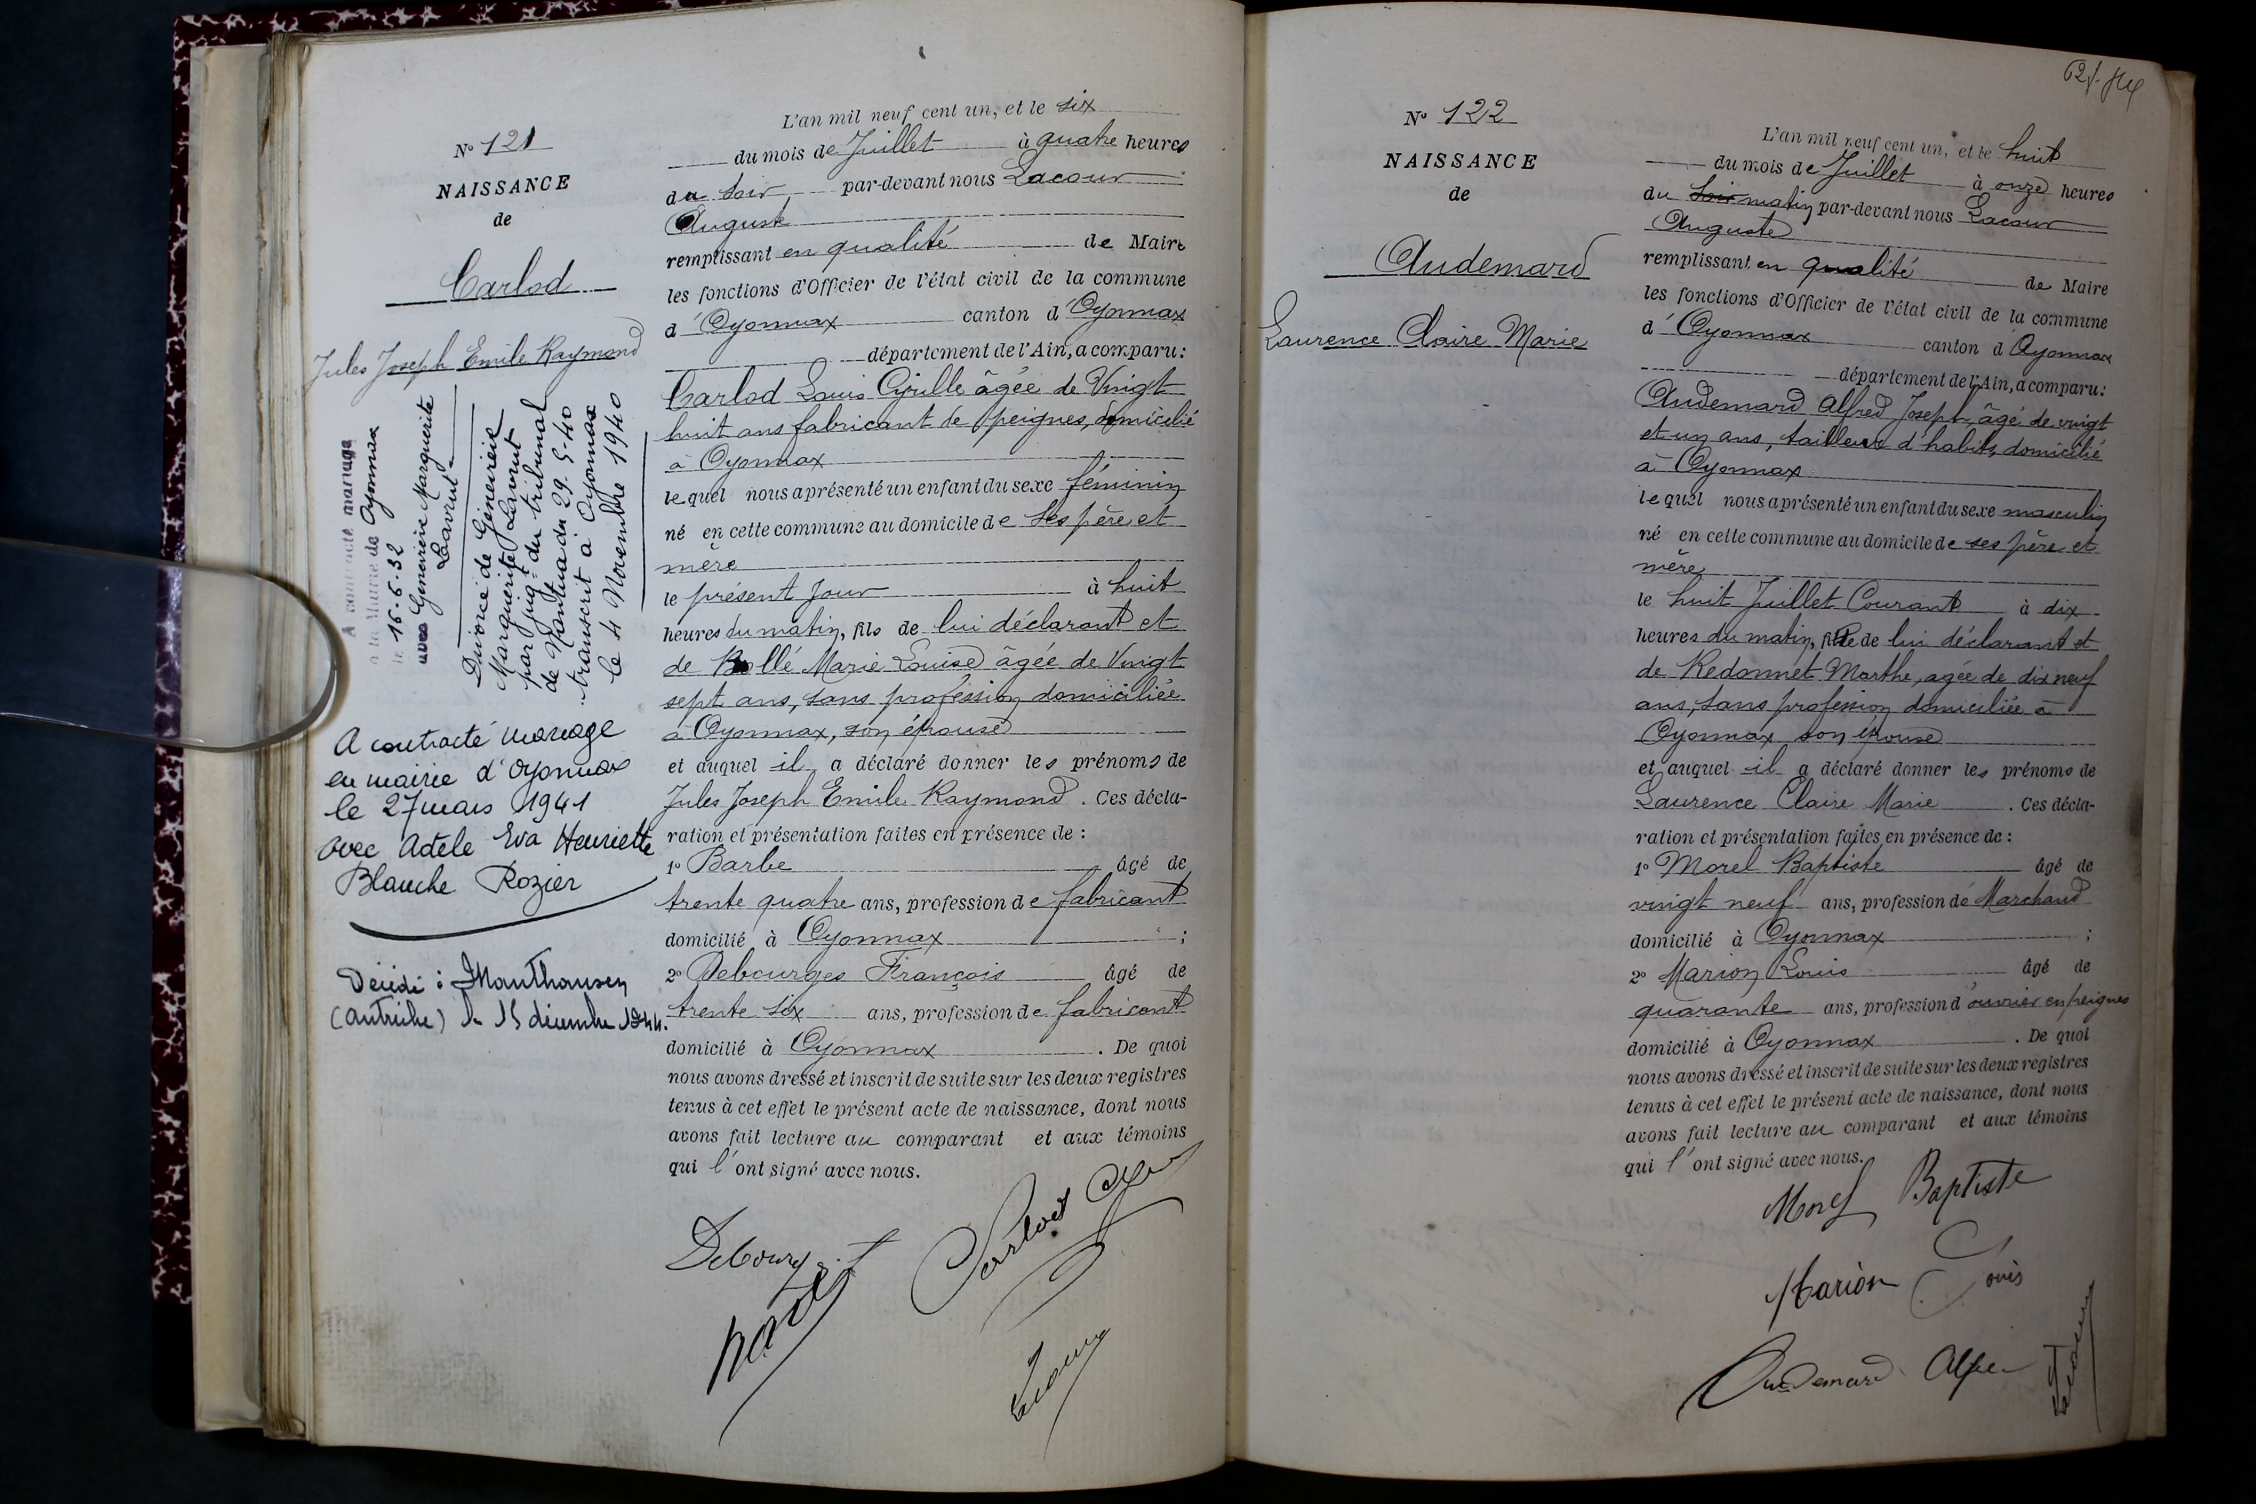 No 121
NAISSANCE
de
Carlod
Jules Joseph Emile Raymond
A contracté mariage
à la Mairie de Oyonnax
le 16-6-32
avec Geneviève Marguerite
Divorcé de Geneviève
Marguerite
par jugt du tribunal
de Nantua du 29-5-40
transcrit à Oyonnax
le 4 Novembre 1940
A contracté mariage
en mairie d'Oyonnax
le 27 mars 1941
avec Adèle Eva Henriette
Blanche Rozier
Décédé à Mauthausen
(Autriche) le 15 décembre 1944.
L'an mil neuf cent un, et le six
du mois de Juillet à quatre heures
du soir par-devant nous Lacour
Auguste
remplissant en qualité de Maire
les fonctions d'Officier de l'état civil de la commune
d'Oyonnax canton d'Oyonnax
département de l'Ain, a comparu:
Carlod Louis Cyrille âgée de Vingt
huit ans fabricant de peignes, domicilié
à Oyonnax
lequel nous a présenté un enfant du sexe féminin
né en cette commune au domicile de ses père et
mère
le présent Jour à huit
heures du matin, fils de lui déclarant et
de Bollé Marie Louise âgée de Vingt
sept ans, sans profession domiciliée
à Oyonnax, son épouse
et auquel il a déclaré donner les prénoms de
Jules Joseph Emile Raymond. Ces décla-
ration et présentation faites en présence de :
1o Barbe âgé de
trente quatre ans, profession de fabricant
domicilié à Oyonnax ;
2o Debourges François âgé de
trente six ans, profession de fabricant
domicilié à Oyonnax. De quoi
nous avons dressé et inscrit de suite sur les deux registres
tenus à cet effet le présent acte de naissance, dont nous
avons fait lecture au comparant et aux témoins
qui l'ont signé avec nous.
No 122
NAISSANCE
de
Audemard
Laurence Claire Marie
L'an mil neuf cent un, et le huit
du mois de Juillet à onze heures
du soir matin par-devant nous Lacour
Auguste
remplissant en qualité de Maire
les fonctions d'Officier de l'état civil de la commune
d'Oyonnax canton d'Oyonnax
département de l'Ain, a comparu:
Audemard Alfred Joseph, âgé de vingt
et un ans, tailleur d'habits, domicilié
à Oyonnax
lequel nous a présenté un enfant du sexe masculin
né en cette commune au domicile de ses père et
mère
le huit Juillet Courant à dix
heures du matin, fille de lui déclarant et
de Redonnet Marthe, agée de dix neuf
ans, sans profession domiciliée à
Oyonnax son épouse
et auquel il a déclaré donner les prénoms de
Laurence Claire Marie. Ces décla-
ration et présentation faites en présence de :
1o Morel Baptiste âgé de
vingt neuf ans, profession de Marchand
domicilié à Oyonnax ;
2o Marion Louis âgé de
quarante ans, profession d'ouvrier en peignes
domicilié à Oyonnax. De quoi
nous avons dressé et inscrit de suite sur les deux registres
tenus à cet effet le présent acte de naissance, dont nous
avons fait lecture au comparant et aux témoins
qui l'ont signé avec nous.
Morel Baptiste
Marion Louis
Audemard Alfred